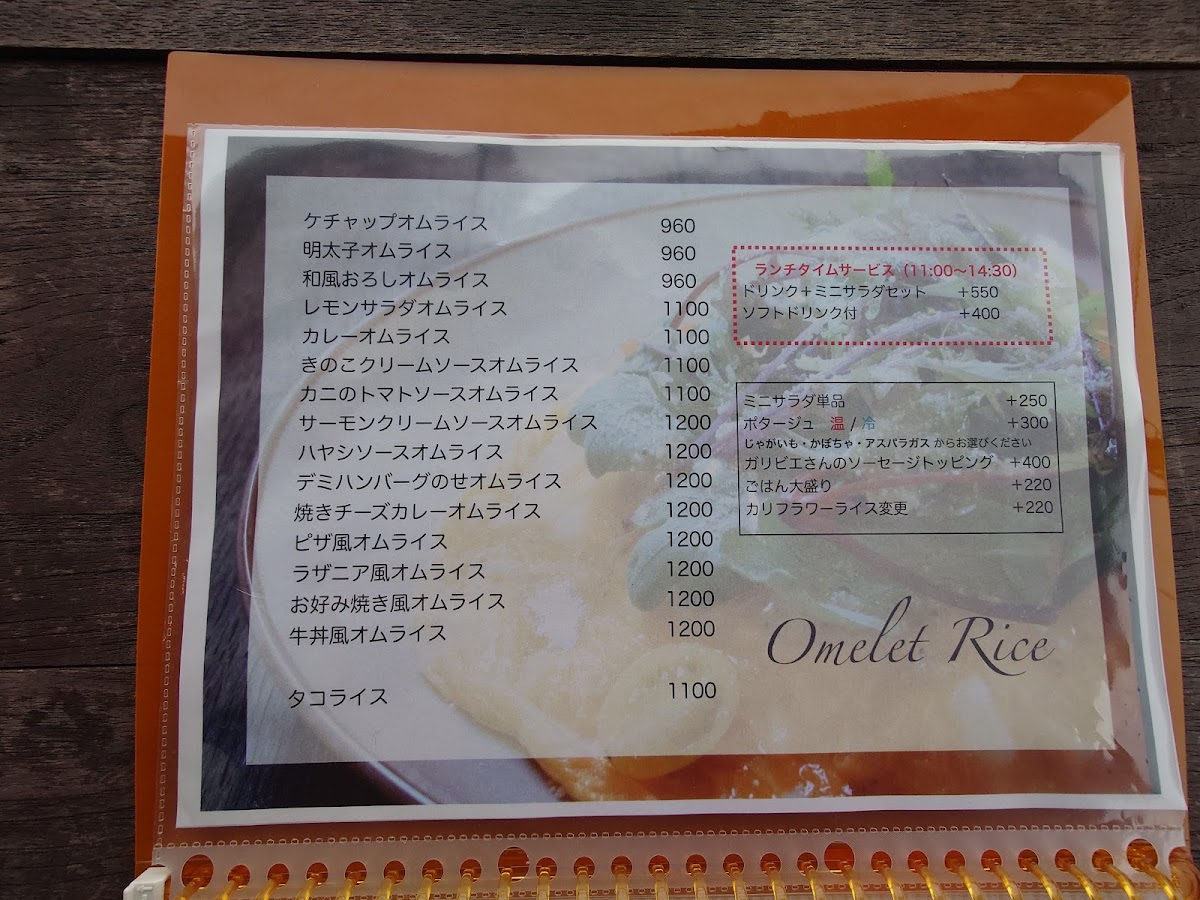 ケチャップオムライス 960
明太子オムライス 960
和風おろしオムライス 960
レモンサラダオムライス 1100
カレーオムライス 1100
きのこクリームソースオムライス 1100
カニのトマトソースオムライス 1100
サーモンクリームソースオムライス 1200
ハヤシソースオムライス 1200
デミハンバーグのせオムライス 1200
焼きチーズカレーオムライス 1200
ピザ風オムライス 1200
ラザニア風オムライス 1200
お好み焼き風オムライス 1200
牛丼風オムライス 1200
タコライス 1100
ランチタイムサービス（11:00〜14:30）
ドリンク＋ミニサラダセット +550
ソフトドリンク付 +400
ミニサラダ単品 +250
ポタージュ 温 / 冷 +300
じゃがいも・かぼちゃ・アスパラガス からお選びください
ガリビエさんのソーセージトッピング +400
ごはん大盛り +220
カリフラワーライス変更 +220
Omelet Rice